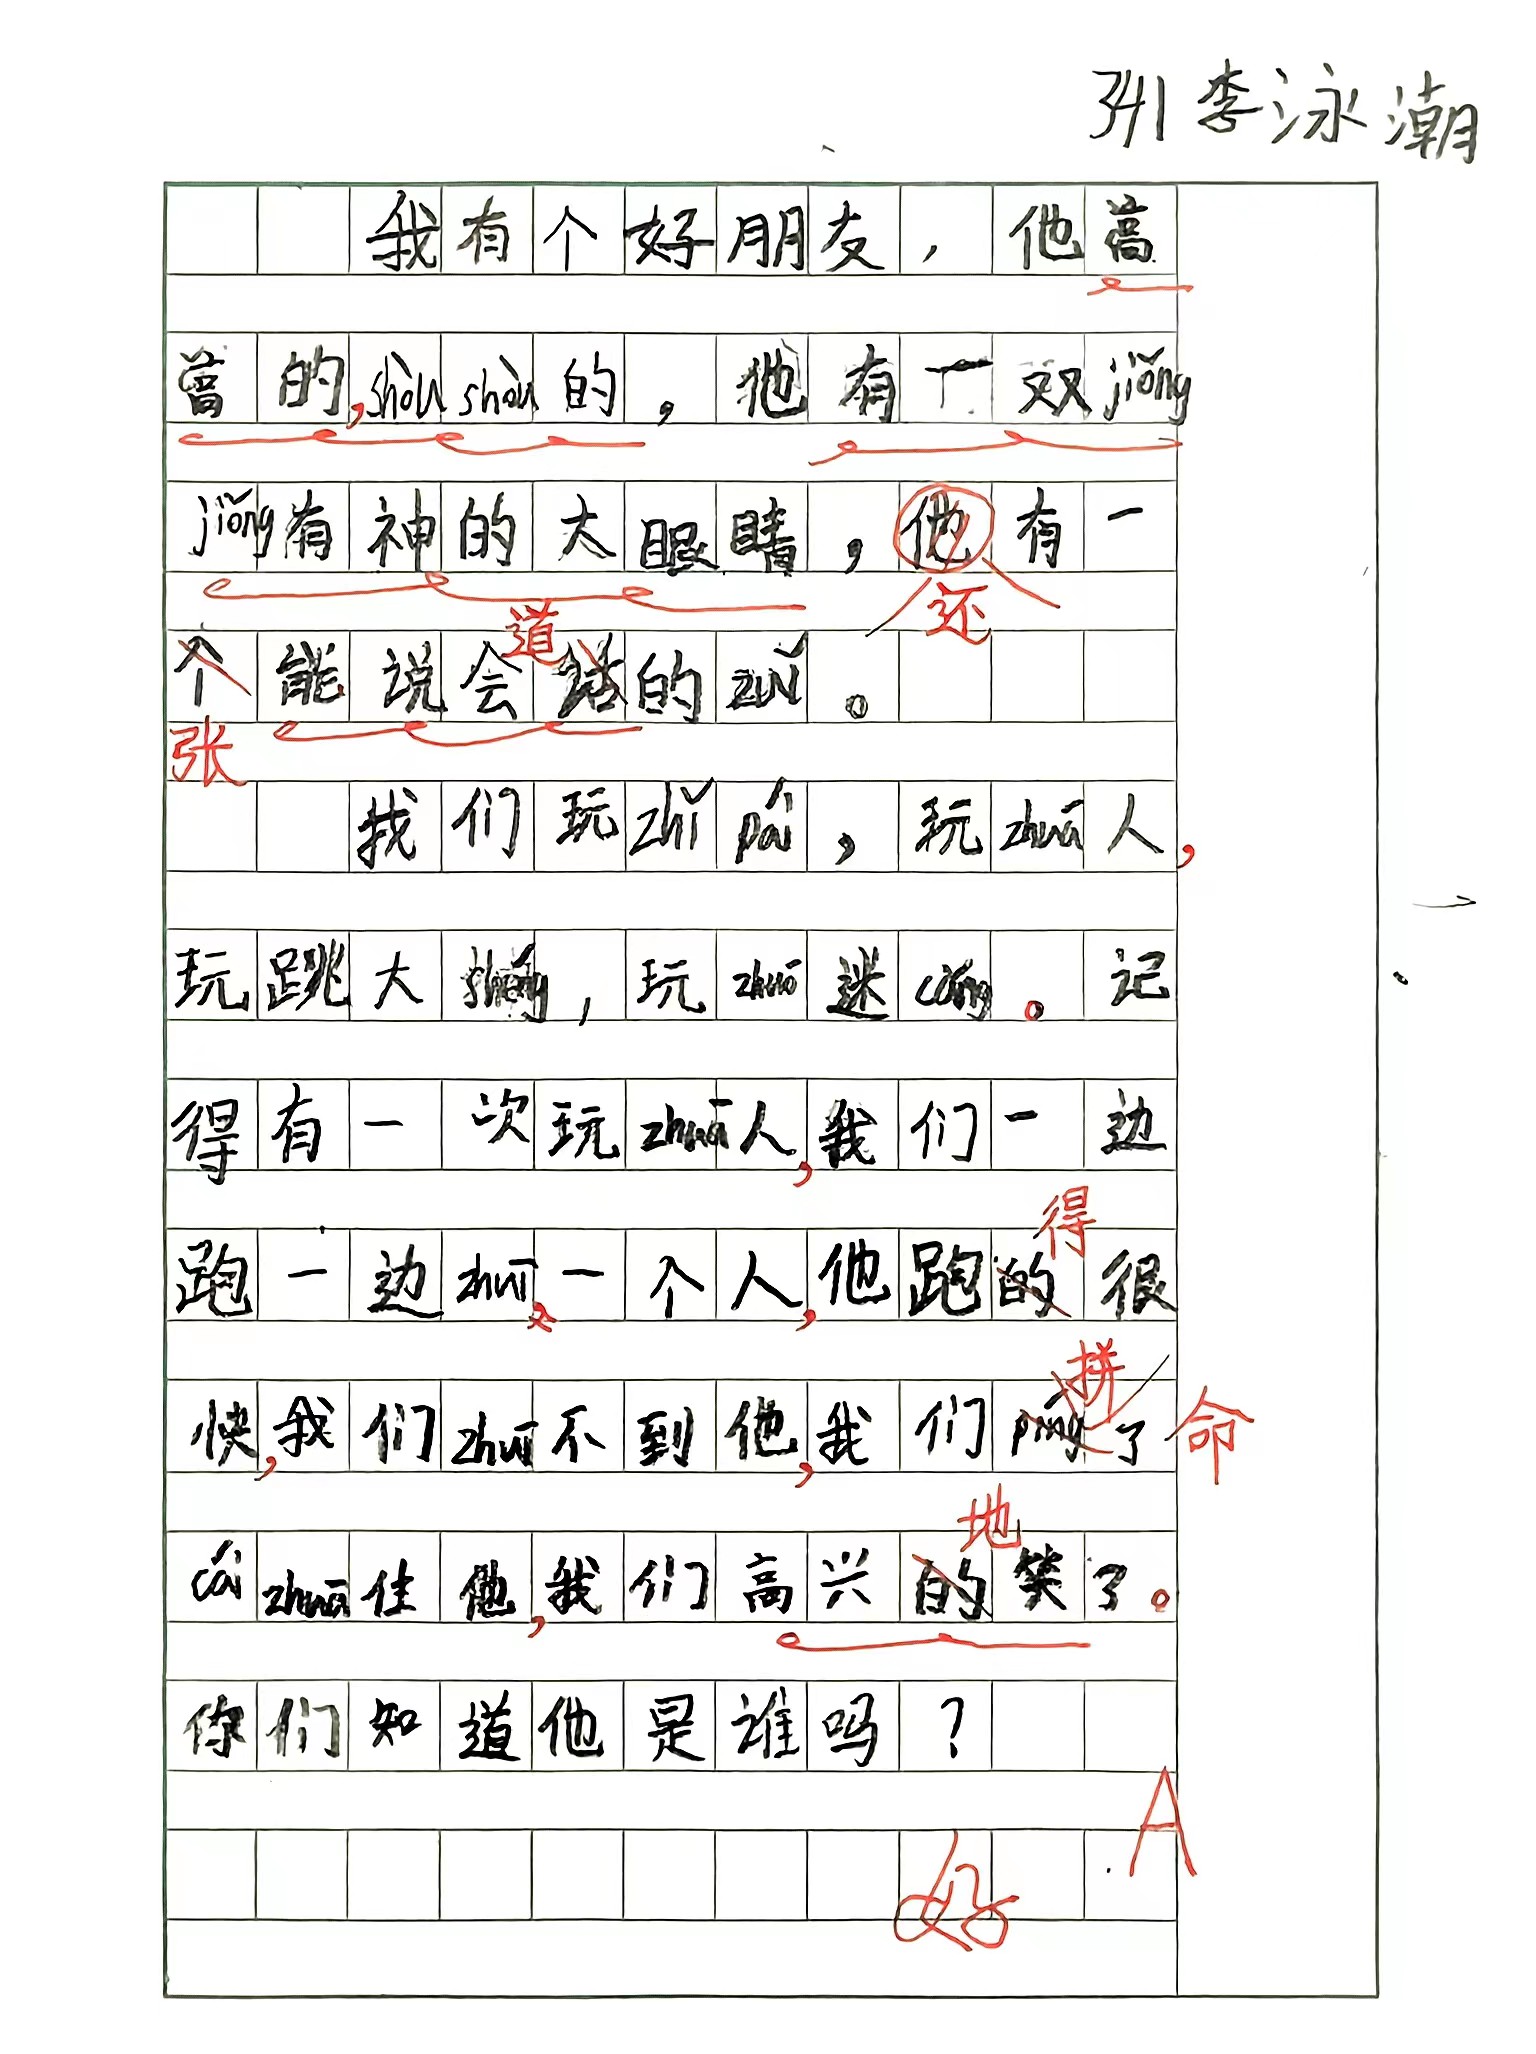 李泳潮
我有个好朋友，他高
高的，shòu shòu的，他有一双jiǒng
jiǒng有神的大眼睛，他有一
还
道
个能说会话的zuǐ。
张
我们玩zhǐ pái，玩zhuā人，
玩跳大shéng，玩zhuō迷cáng。记
得有一次玩zhuā人，我们一边
得
跑一边zhuī一个人，他跑的很
拼
快，我们zhuī不到他，我们pīng了命
地
cái zhuā住他，我们高兴的笑了。
你们知道他是谁吗？
A
好